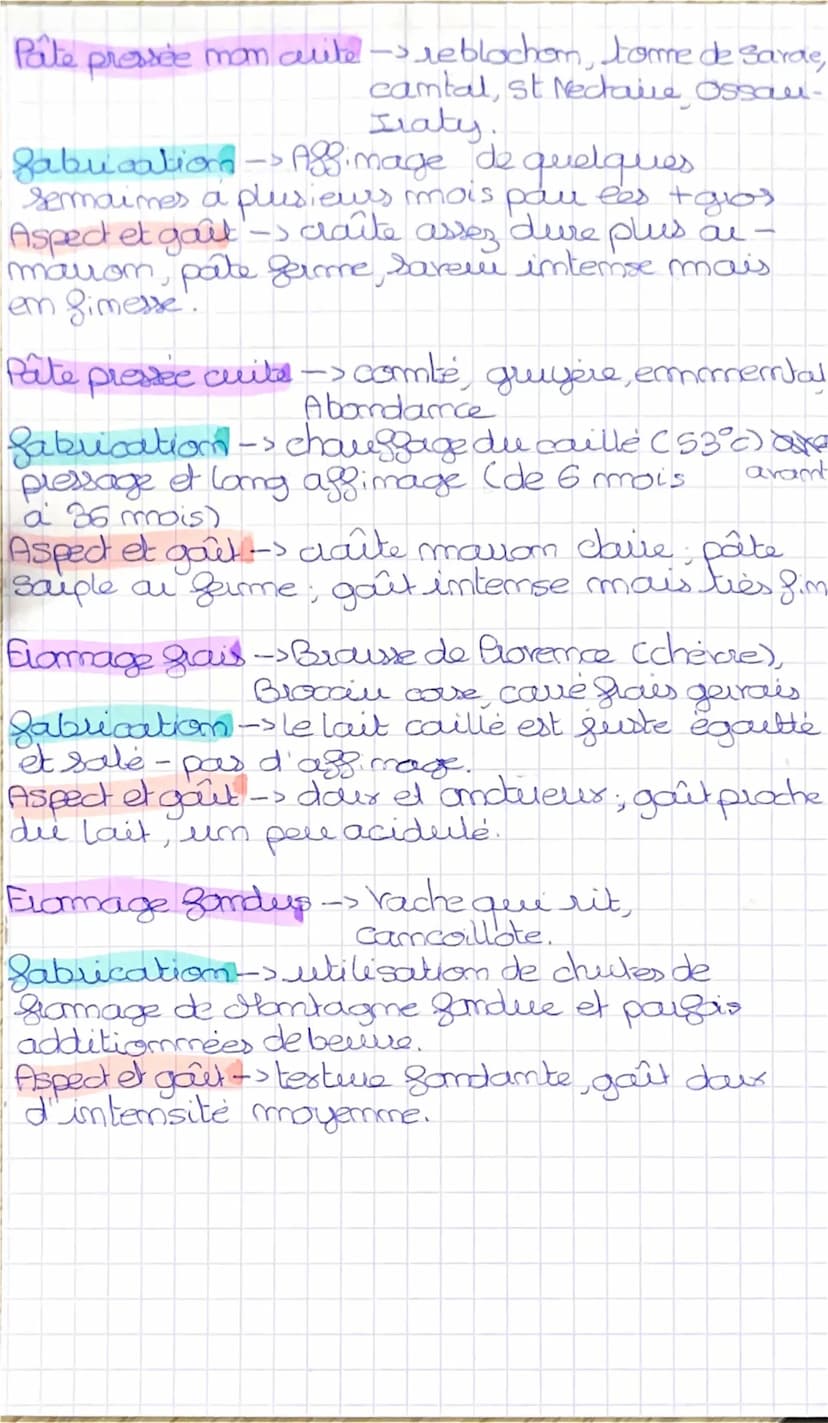 Pâte pressée non cuite -> reblochon, tome de Savoie,
cantal, St Nectaire, Ossau-
Iraty.
fabrication -> Affinage de quelques
semaines à plusieurs mois pour les + gros
Aspect et goût -> croûte assez dure plus ou -
marron, pâte ferme, saveur intense mais
en finesse.
Pâte pressée cuite -> comté, gruyère, emmental
Abondance
fabrication -> chauffage du caillé (53°c)
pressage et long affinage (de 6 mois avant
à 36 mois)
Aspect et goût -> croûte marron claire ; pâte
souple ou ferme ; goût intense mais très fin
Fromage frais -> Brousse de Provence (chèvre),
Brocciu corse, carré frais gervais
fabrication -> le lait caillé est juste égoutté
et salé - pas d'affinage.
Aspect et goût -> doux et onctueux ; goût proche
du lait, un peu acidulé.
Fromage fondus -> Vache qui rit,
Cancoillote.
fabrication -> utilisation de chutes de
fromage de Montagne fondue et parfois
additionnées de beurre.
Aspect et goût -> texture fondante, goût doux
d'intensité moyenne.